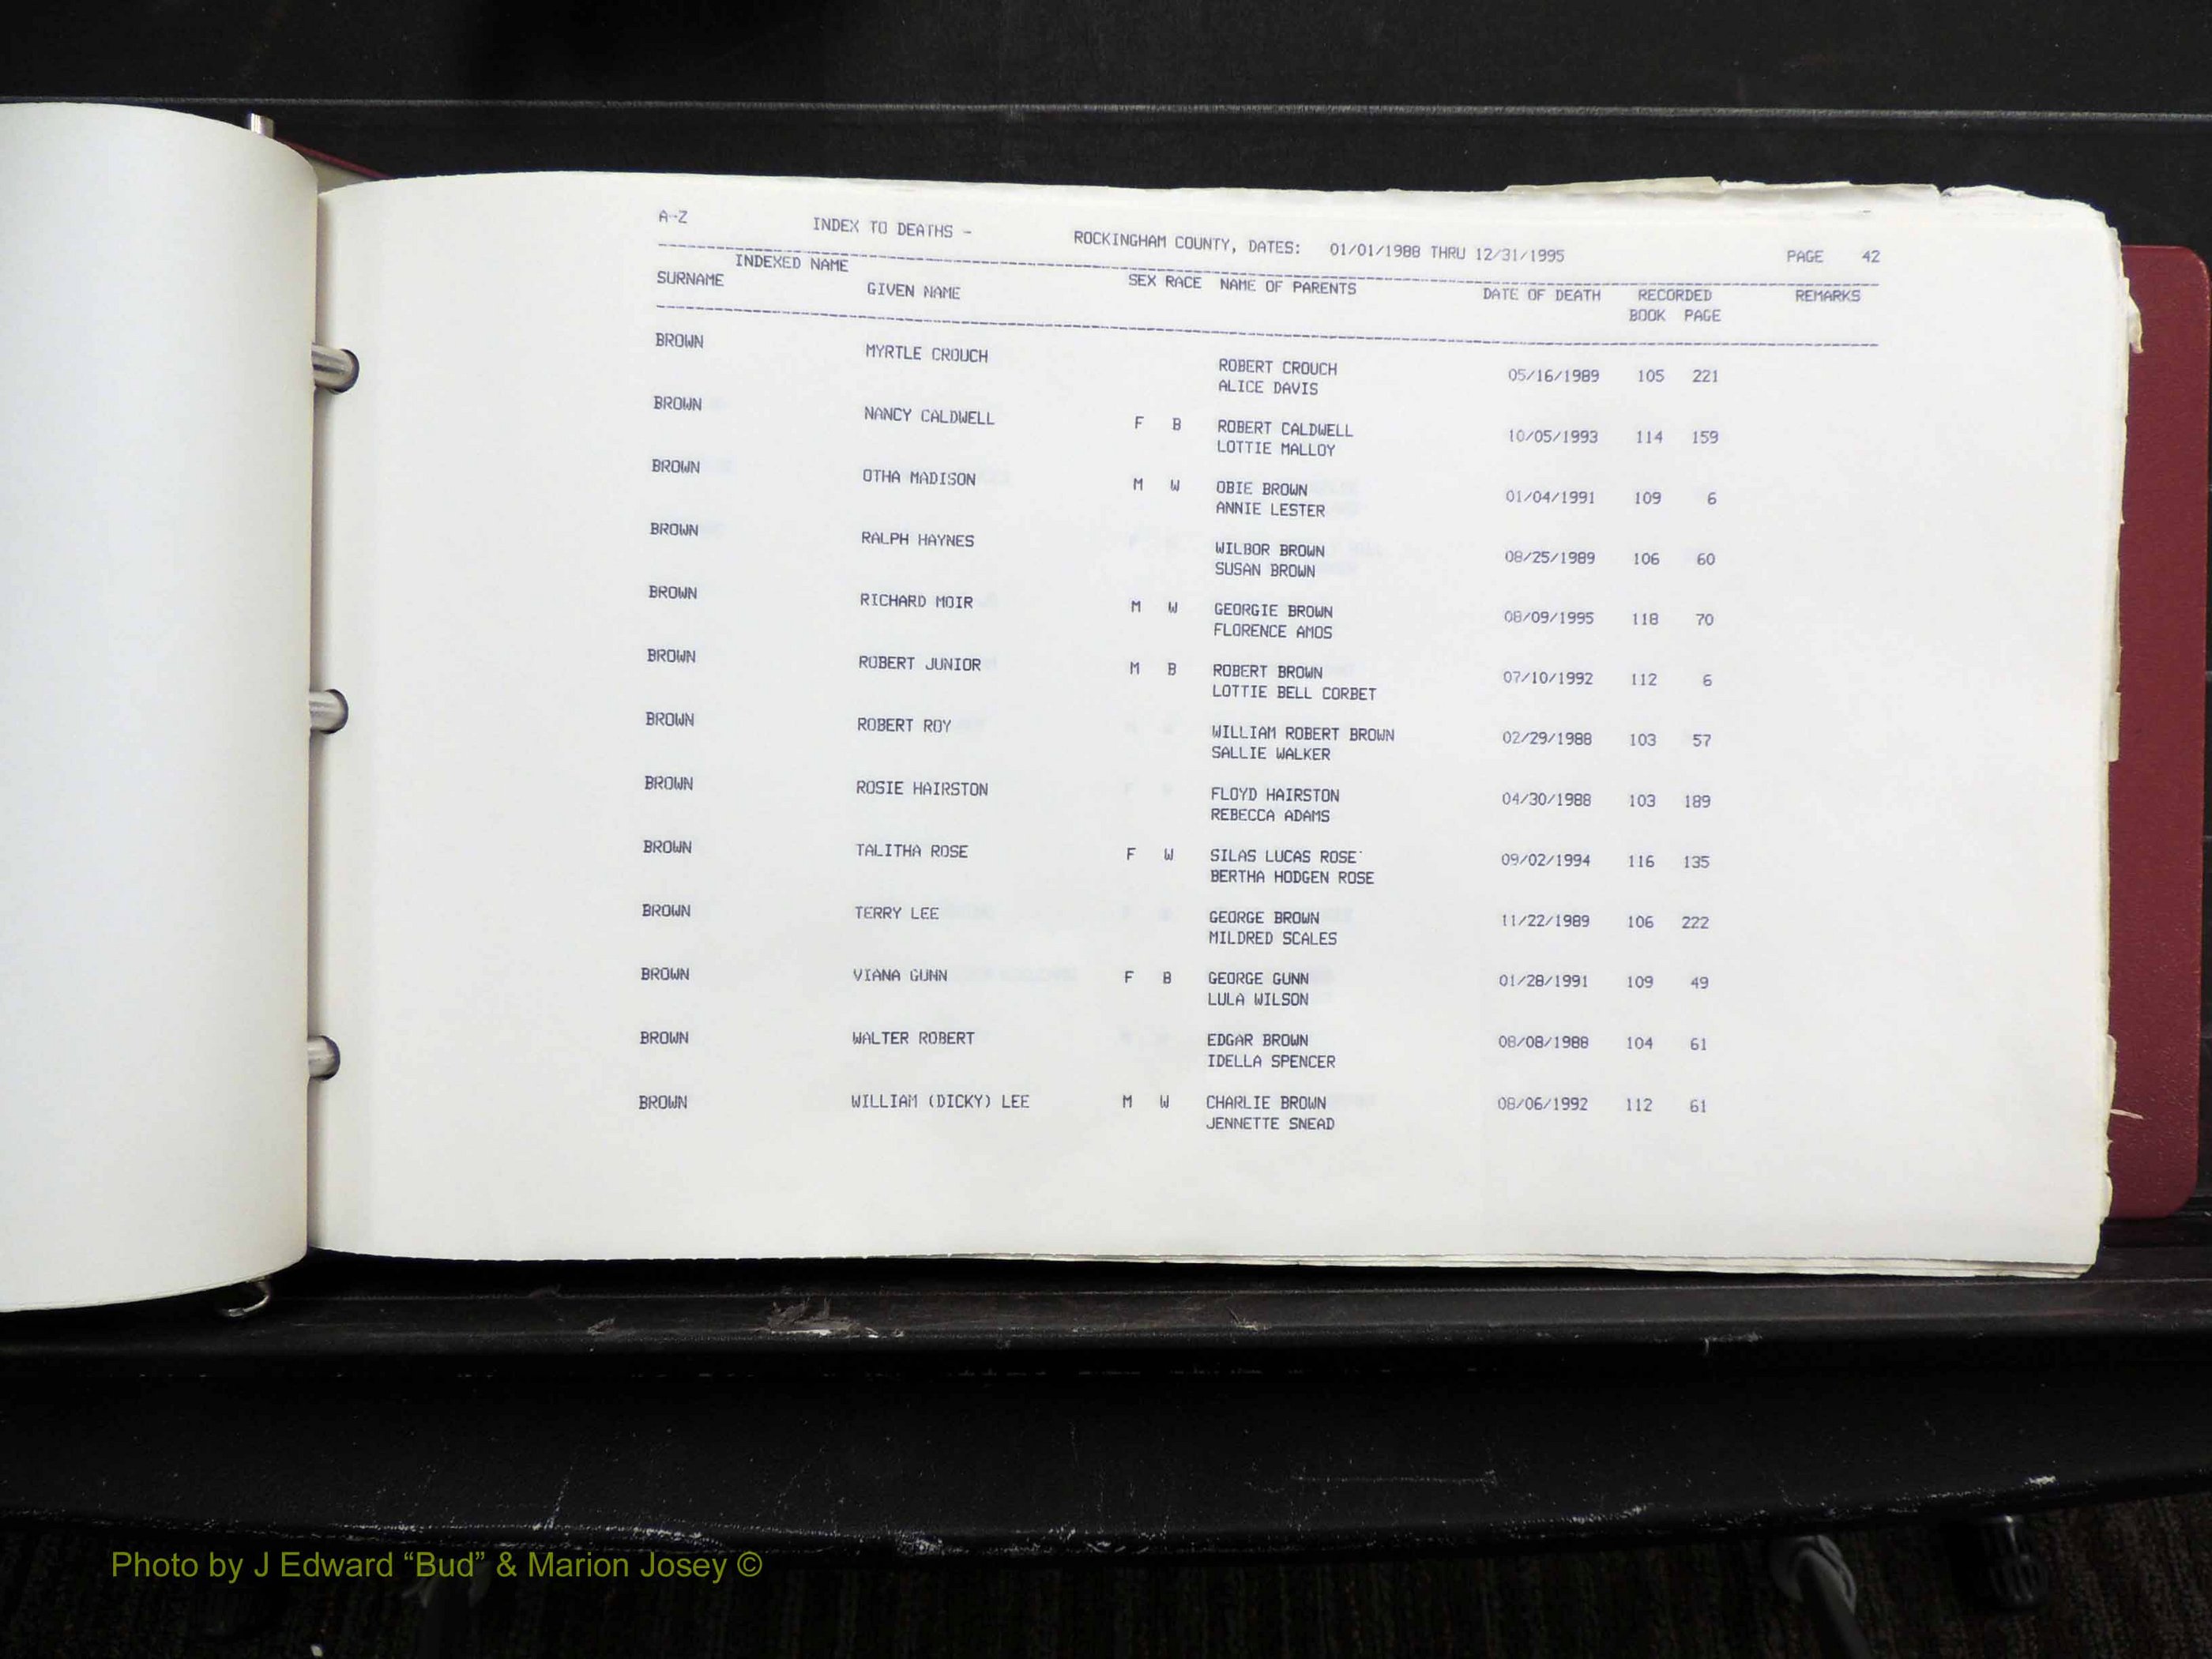 A-Z INDEX TO DEATHS - ROCKINGHAM COUNTY, DATES: 01/01/1988 THRU 12/31/1995 PAGE 42
INDEXED NAME
SURNAME GIVEN NAME SEX RACE NAME OF PARENTS DATE OF DEATH RECORDED REMARKS
BOOK PAGE
BROWN MYRTLE CROUCH ROBERT CROUCH 05/16/1989 105 221
ALICE DAVIS
BROWN NANCY CALDWELL F B ROBERT CALDWELL 10/05/1993 114 159
LOTTIE MALLOY
BROWN OTHA MADISON M W OBIE BROWN 01/04/1991 109 6
ANNIE LESTER
BROWN RALPH HAYNES WILBOR BROWN 08/25/1989 106 60
SUSAN BROWN
BROWN RICHARD MOIR M W GEORGIE BROWN 08/09/1995 118 70
FLORENCE AMOS
BROWN ROBERT JUNIOR M B ROBERT BROWN 07/10/1992 112 6
LOTTIE BELL CORBET
BROWN ROBERT ROY WILLIAM ROBERT BROWN 02/29/1988 103 57
SALLIE WALKER
BROWN ROSIE HAIRSTON FLOYD HAIRSTON 04/30/1988 103 189
REBECCA ADAMS
BROWN TALITHA ROSE F W SILAS LUCAS ROSE 09/02/1994 116 135
BERTHA HODGEN ROSE
BROWN TERRY LEE GEORGE BROWN 11/22/1989 106 222
MILDRED SCALES
BROWN VIANA GUNN F B GEORGE GUNN 01/28/1991 109 49
LULA WILSON
BROWN WALTER ROBERT EDGAR BROWN 08/08/1988 104 61
IDELLA SPENCER
BROWN WILLIAM (DICKY) LEE M W CHARLIE BROWN 08/06/1992 112 61
JENNETTE SNEAD
Photo by J Edward “Bud” & Marion Josey ©